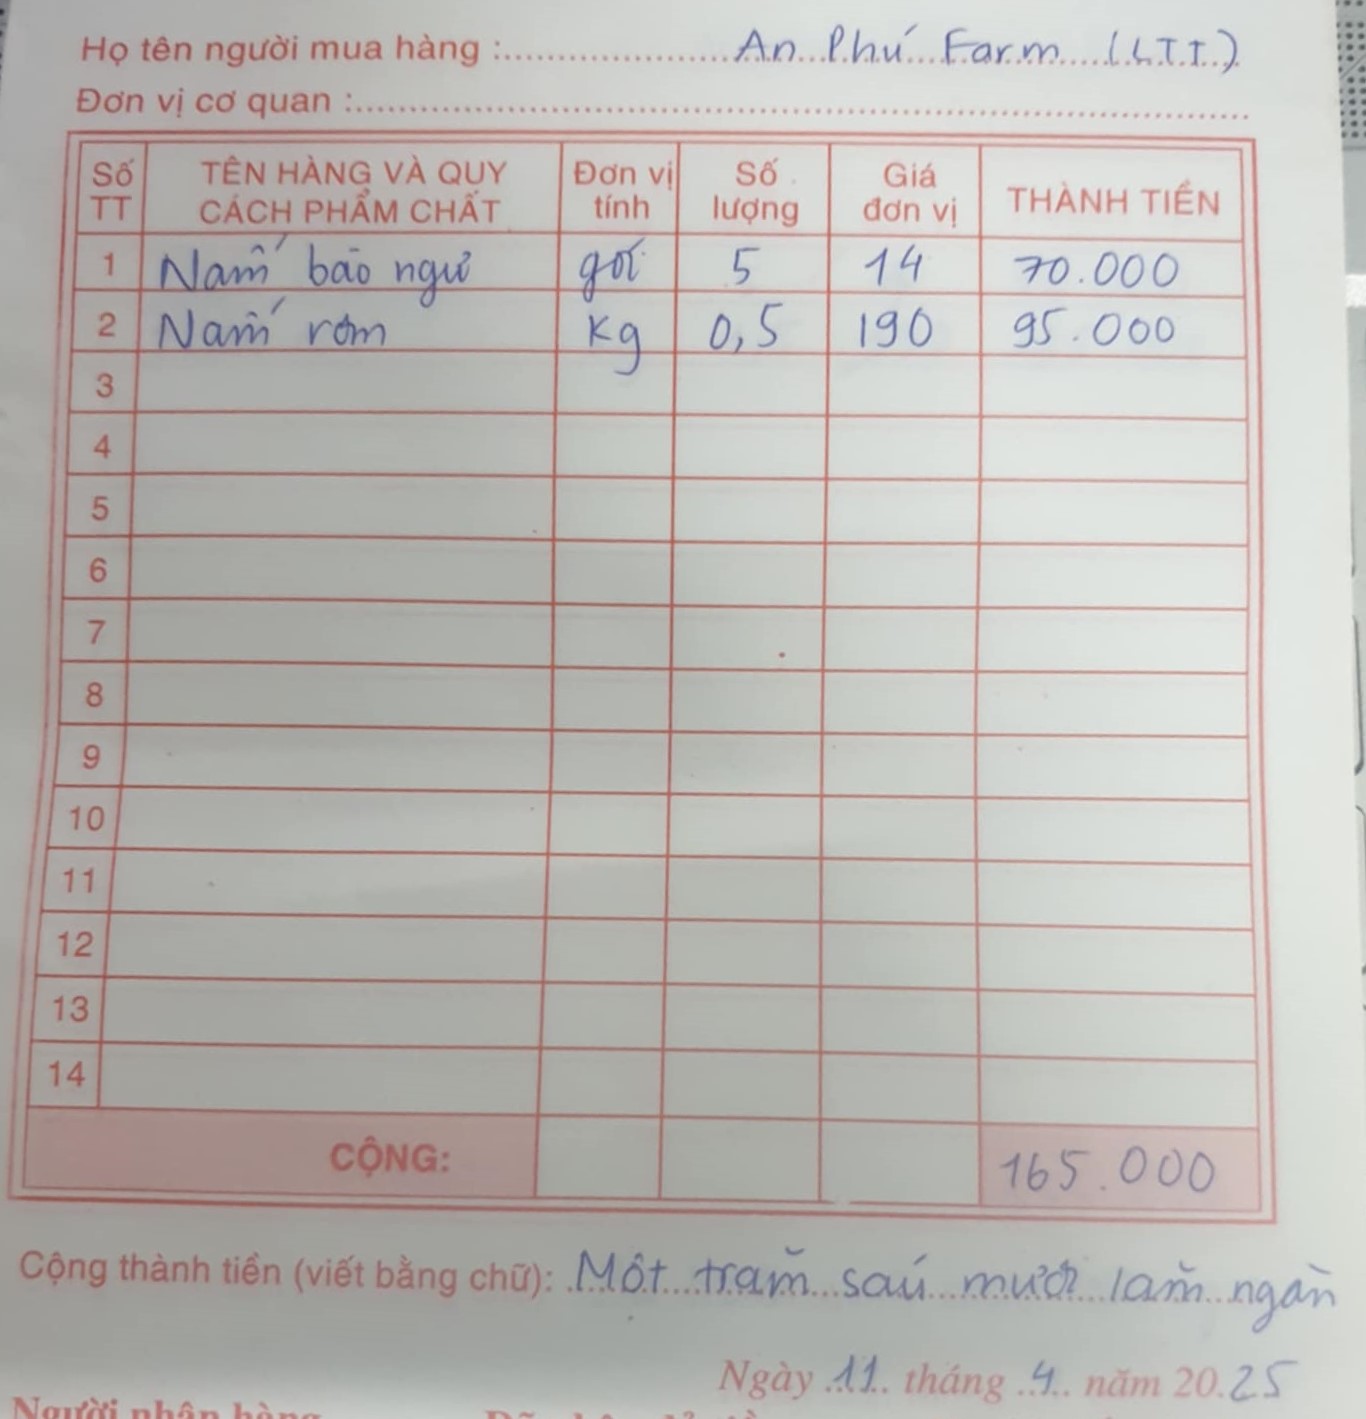 Họ tên người mua hàng : An Phú Farm (LTT)
Đơn vị cơ quan :
Số TT TÊN HÀNG VÀ QUY CÁCH PHẨM CHẤT Đơn vị tính Số lượng Giá đơn vị THÀNH TIỀN
1 Nấm bào ngư gói 5 14 70.000
2 Nấm rơm kg 0,5 190 95.000
3
4
5
6
7
8
9
10
11
12
13
14
CỘNG: 165.000
Cộng thành tiền (viết bằng chữ): Một trăm sáu mươi lăm ngàn
Ngày 11 tháng 4 năm 2025
Người nhận hàng